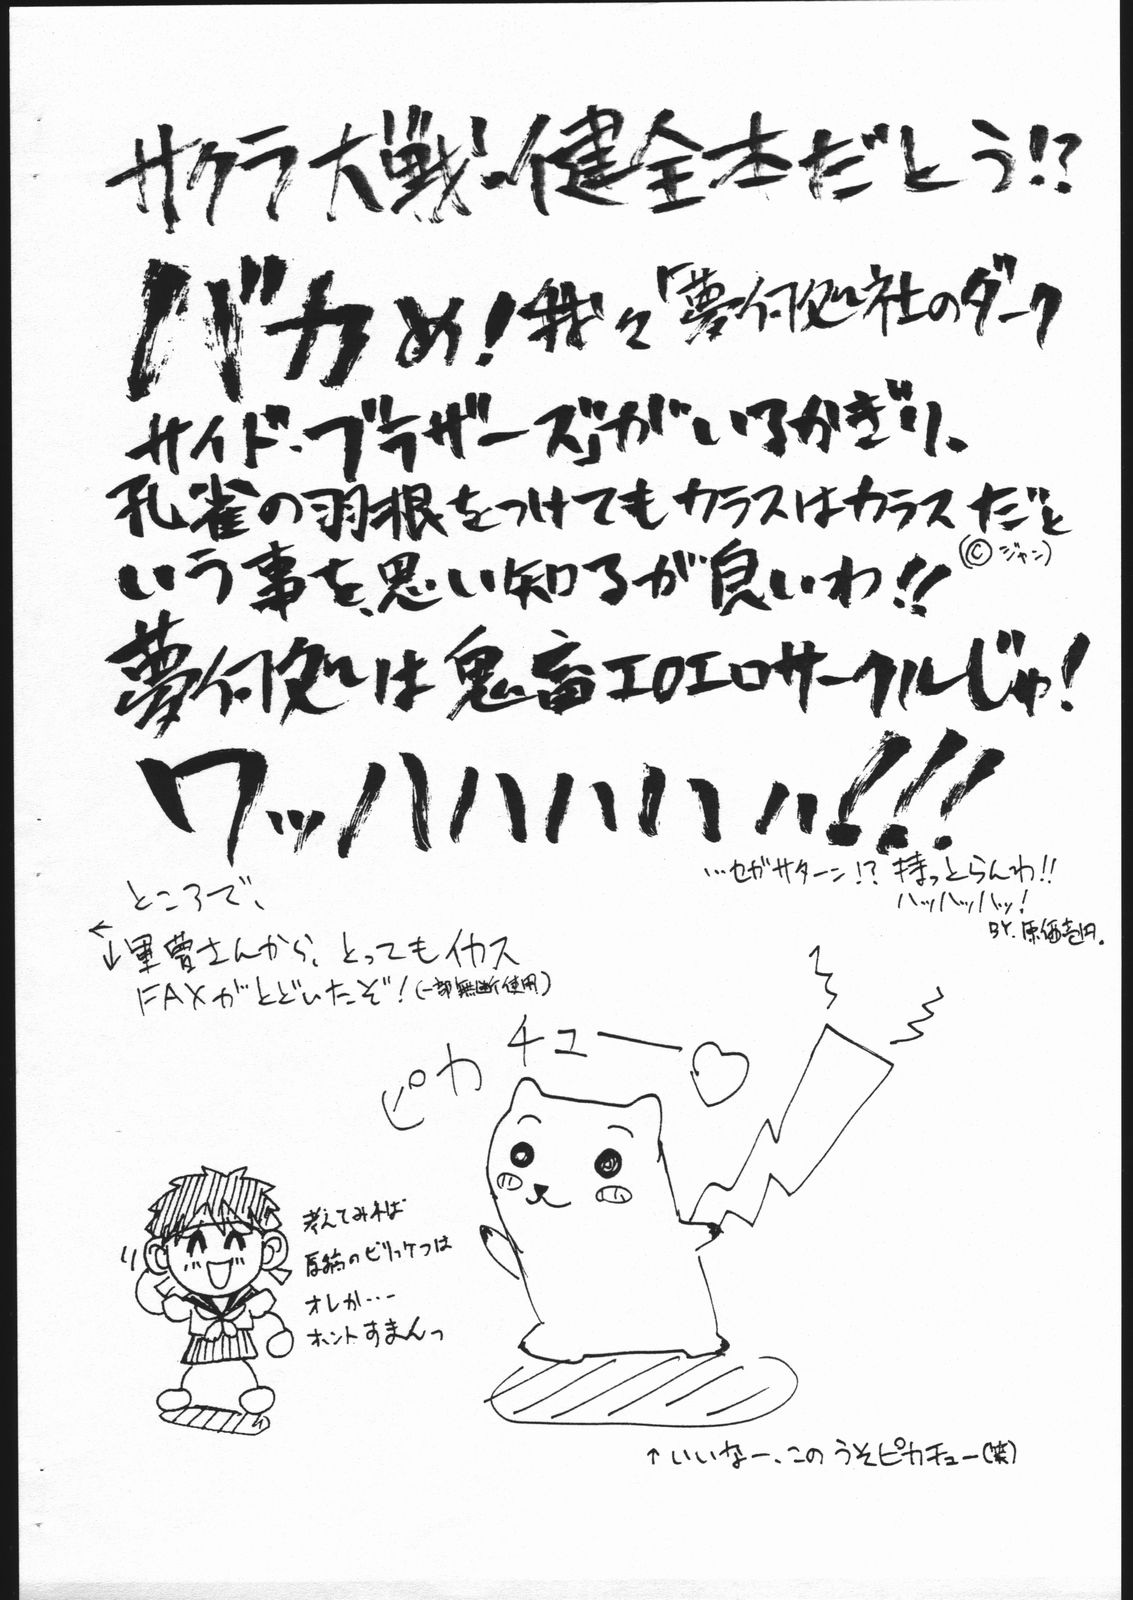 サクラ大戦・健全本だとう!?
バカめ!我々「夢何処社のダーク
サイド・ブラザーズ」がいるかぎり、
孔雀の羽根をつけてもカラスはカラスだと
(©ジャン)
いう事を、思い知るが良いわ!!
夢何処は鬼畜エロエロサークルじゃ!
ワッハハハハハ!!!
…セガサターン!?持っとらんわ!!
ハッハッハッ!
BY.原価壱円。
ところで、
←↓里曹さんから、とってもイカス
FAXがとどいたぞ!(一部無断使用)
ピカチュー♡
考えてみれば
原稿のビリッケツは
オレか・・・
ホントすまんっ
↑いいなー、このうそピカチュー(笑)